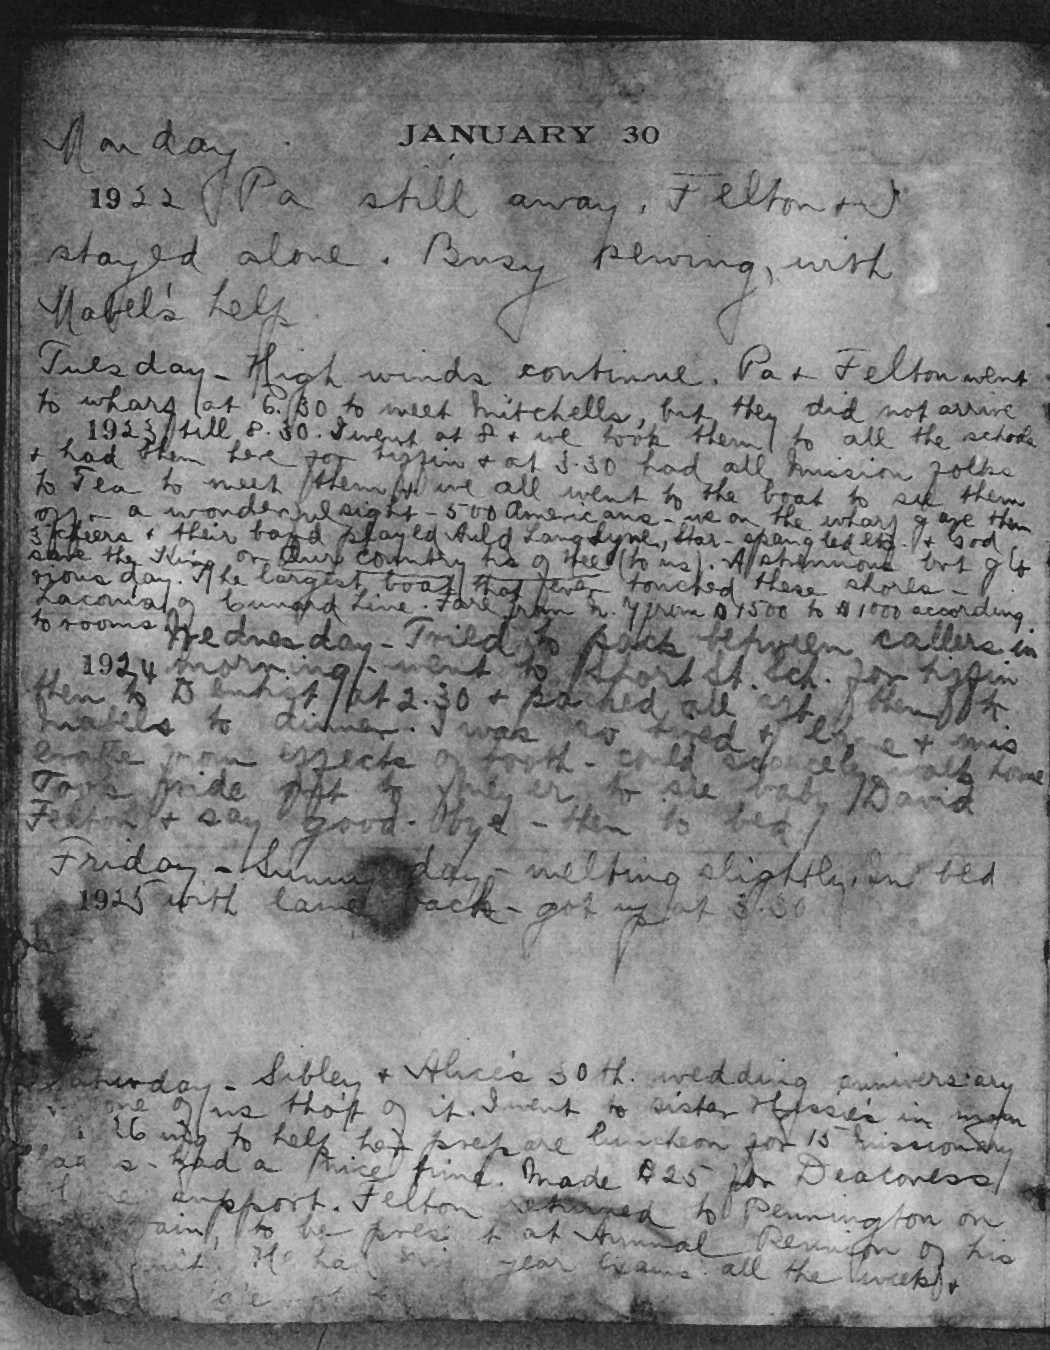 JANUARY 30
Monday
1922 Pa still away, Felton & I
stayed alone. Busy sewing, with
Mabel's help.
Tuesday - High winds continue. Pa & Felton went
to wharf at 6.30 to meet Mitchells, but they did not arrive
1923 till 8.30. I went at 8 & we took them to all the schools
& had them here for tiffin & at 3.30 had all mission folks
to Tea to meet them & we all went to the boat to see them
off - a wonderful sight - 500 Americans - us on the wharf gave them
3 cheers & their band played Auld Lang Syne, Star-spangled etc. & God
save the King or Our country tis of thee (to us). A strenuous but glo
rious day. The largest boat that ever touched these shores -
Laconia of Cunard Line. Fare from N.Y from $1500 to $1000 according
to rooms Wednesday - Tried to pack between callers in
1924 morning - went to Short St. Sch. for tiffin
then to Dentist at 2.30 & packed all
Mabels to dinner. I was so tired & & mis
erable from effects of tooth - could scarcely walk home
Took ride to to see baby David
Felton & say good-bye - then to bed
Friday - Sunny day - melting slightly. In bed
1925 with lame back - got up at 3.30
Saturday - Sibley & Alice's 30th. wedding anniversary
one of us tho't of it. I went to sister in morn
26 ing to help her prepare luncheon for 15 missionary
had a nice time. Made $25 for Deaconess
support. Felton returned to Pennington on
to be present at Annual Reunion of his
He had year Exams all the week &